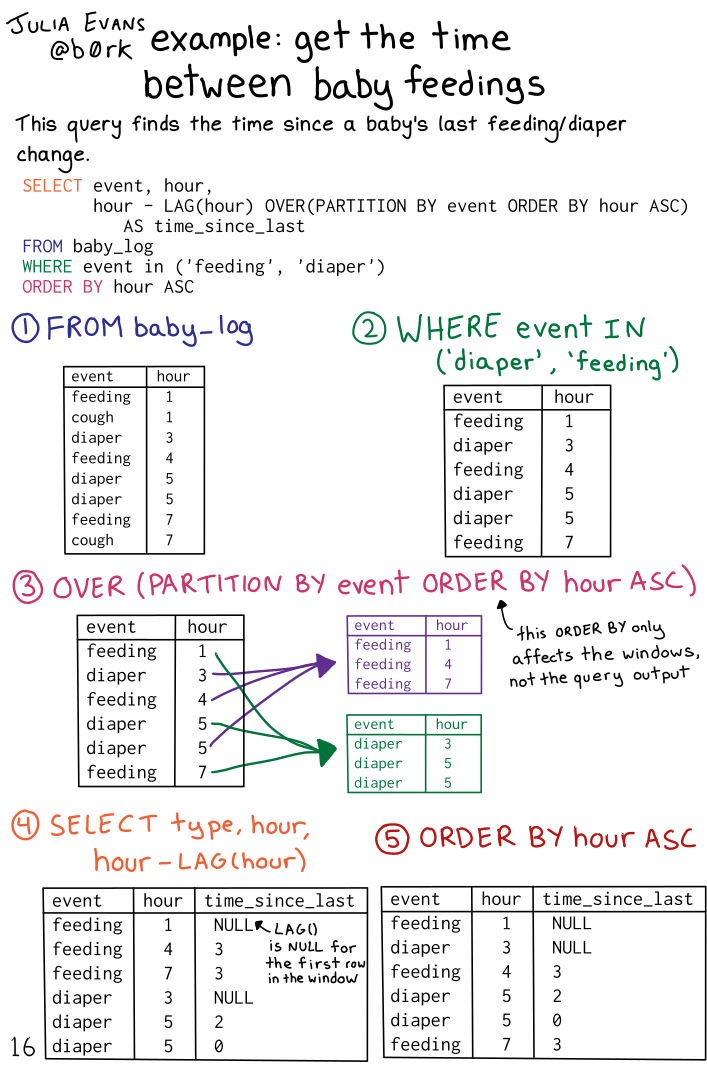 JULIA EVANS
@b0rk
example: get the time
between baby feedings
This query finds the time since a baby's last feeding/diaper
change.
SELECT event, hour,
hour - LAG(hour) OVER(PARTITION BY event ORDER BY hour ASC)
AS time_since_last
FROM baby_log
WHERE event in ('feeding', 'diaper')
ORDER BY hour ASC
① FROM baby_log
event hour
feeding 1
cough 1
diaper 3
feeding 4
diaper 5
diaper 5
feeding 7
cough 7
② WHERE event IN
('diaper', 'feeding')
event hour
feeding 1
diaper 3
feeding 4
diaper 5
diaper 5
feeding 7
③ OVER (PARTITION BY event ORDER BY hour ASC)
event hour
feeding 1
diaper 3
feeding 4
diaper 5
diaper 5
feeding 7
event hour
feeding 1
feeding 4
feeding 7
event hour
diaper 3
diaper 5
diaper 5
this ORDER BY only
affects the windows,
not the query output
④ SELECT type, hour,
hour - LAG(hour)
event hour time_since_last
feeding 1 NULL
feeding 4 3
feeding 7 3
diaper 3 NULL
diaper 5 2
diaper 5 0
LAG()
is NULL for
the first row
in the window
⑤ ORDER BY hour ASC
event hour time_since_last
feeding 1 NULL
diaper 3 NULL
feeding 4 3
diaper 5 2
diaper 5 0
feeding 7 3
16